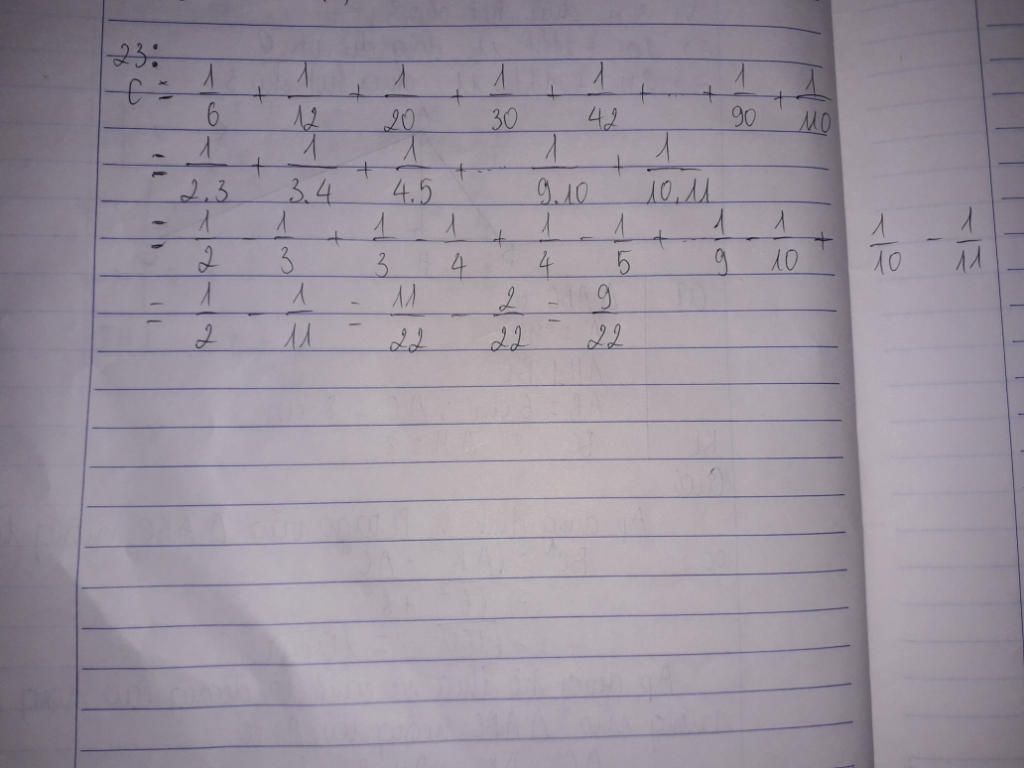 23:
C = 1/6 + 1/12 + 1/20 + 1/30 + 1/42 + ... + 1/90 + 1/110
= 1/2.3 + 1/3.4 + 1/4.5 + ... 1/9.10 + 1/10.11
= 1/2 - 1/3 + 1/3 - 1/4 + 1/4 - 1/5 + ... 1/9 - 1/10 + 1/10 - 1/11
= 1/2 - 1/11 = 11/22 - 2/22 = 9/22